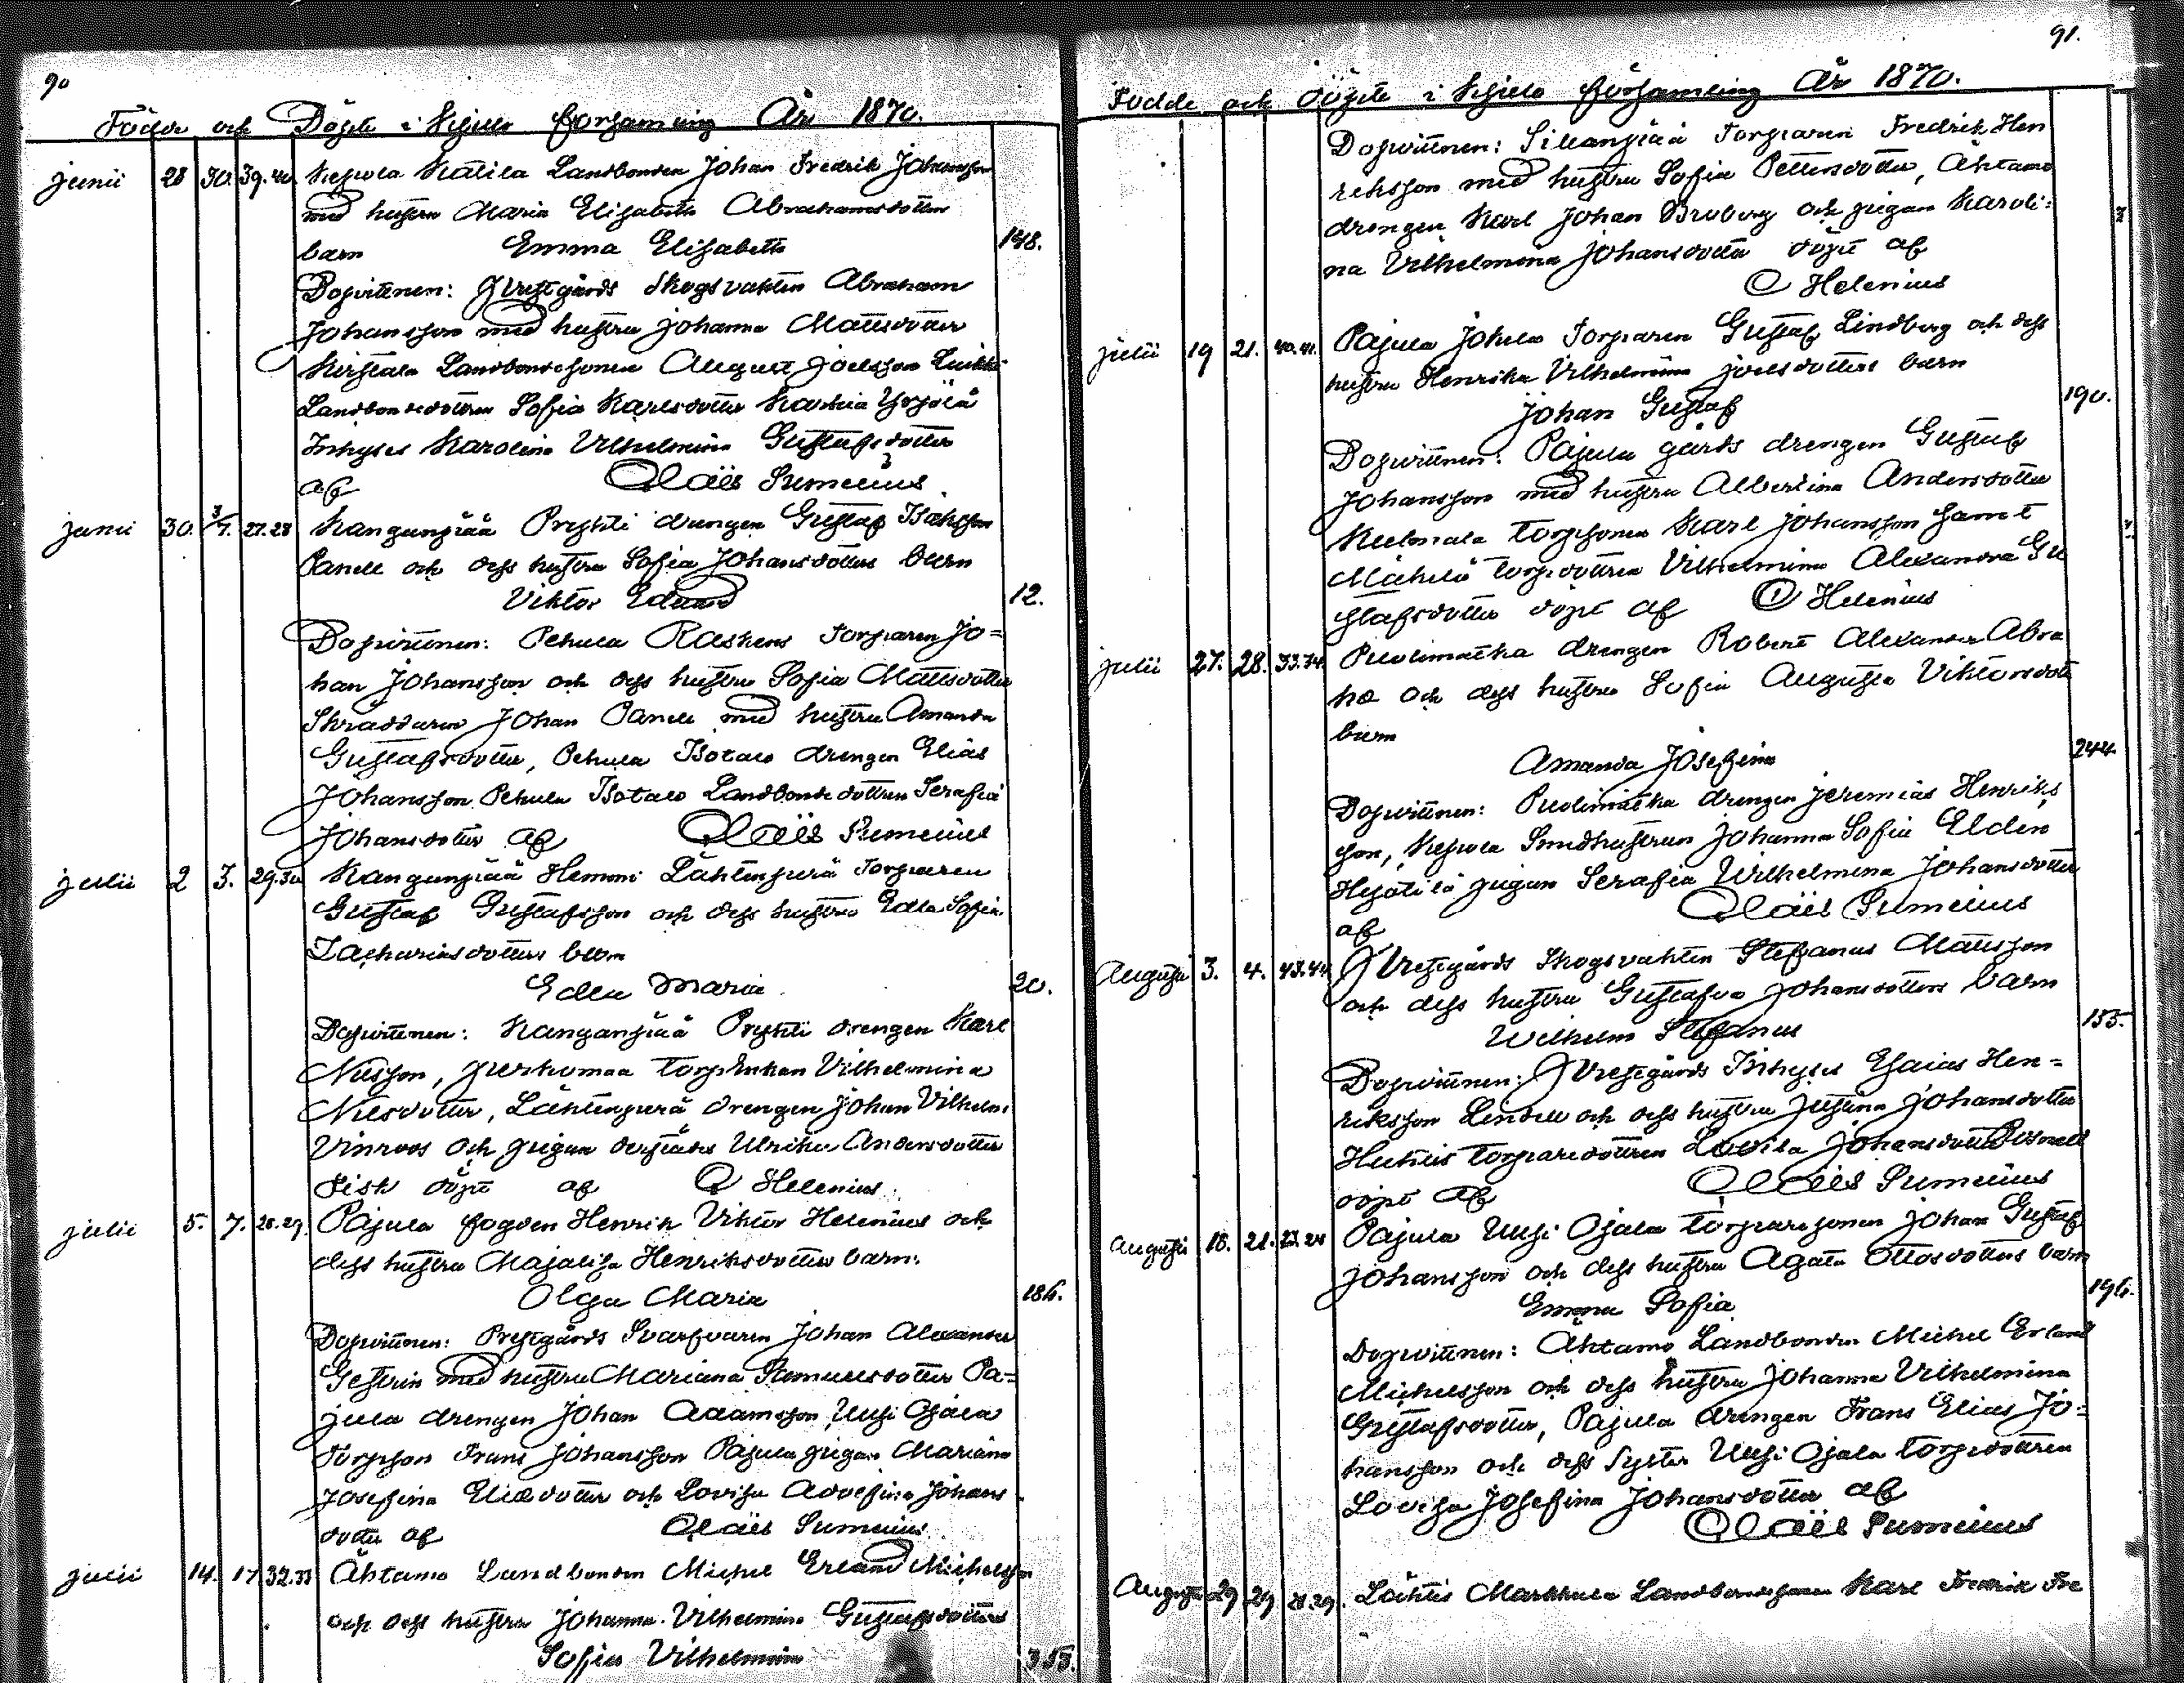 90
Födde och Döpte i Kjulo församling År 1870.
junii 28 30. 39.40 Kepola Katila Landbonden Johan Fredrik Johansson
med hustru Maria Elisabeth Abrahamsdotters
barn Emma Elisabeth 148.
Dopvittnen: Prestgårds Skogsvakten Abraham
Johansson med hustru Johanna Mattsdotter
Landbondesonen August Joelsson
Landbondedottren Sofia Karlsdotter Yrjölä
Inhyses Karolina Vilhelmina Gustafsdotter
af Claës Sumelius
junii 30. 3/7. 27.28 Kanganpää Prykti drengen Gustaf Isaksson
och dess hustru Sofia Johansdotters barn
Viktor Eduard 12.
Dopvittnen: Pehula Raskens Torparen Jo=
han Johansson och dess hustru Sofia Mattsdotter
Skräddaren Johan med hustru Amanda
Gustafsdotter, Pehula Isotalo drengen Elias
Johansson Pehula Isotalo Landbondedottren Serafia
Johansdotter af Claës Sumelius
julii 2 3. 29.30 Kanganpää Hemmi Lähtenperä Torparen
Gustaf Gustafsson och dess hustru Edla Sofia
Zachariasdotters barn
Edla Maria 20.
Dopvittnen: Kanganpää Prykti drengen Karl
Nilsson, torpenkan Vilhelmina
Nilsdotter, Lähtenperä drengen Johan Vilhelm
Vinroos och pigan derstädes Ulrika Andersdotter
Fisk döpt af C Helenius
julii 5. 7. 28.29. Pajula fogden Henrik Viktor Helenius och
dess hustru Majalisa Henriksdotters barn:
Olga Maria 186.
Dopvittnen: Prestgårds Svarfvaren Johan Alexander
med hustru Mariana Samuelsdotter Pa=
jula drengen Johan Adamsson, Uusi Ojala
Torpson Frans Johansson Pajula pigan Mariana
Josefina Eliasdotter och Lovisa Adolfina Johans
dotter af Claës Sumelius.
julii 14. 17 32.33 Ähtamo Landbonden Michel Erland Michelsson
och dess hustru Johanna Vilhelmina Gustafsdotters
Sofia Vilhelmina 353.
91.
Födde och Döpte i Kjulo församling År 1870.
Dopvittnen: Sileanpää Torparen Fredrik Hen
riksson med hustru Sofia Pettersdotter, Ähtamo
drengen Karl Johan Broberg och pigan Karoli:
na Vilhelmina Johansdotter döpt af
C Helenius
julii 19 21. 40.41. Pajula Johela Torparen Gustaf Lindberg och dess
hustru Henrika Vilhelmina Joelsdotters barn
Johan Gustaf 190.
Dopvittnen: Pajula gårds drengen Gustaf
Johansson med hustru Albertina Andersdotter
Torpsonen Karl Johansson samt
Mickelä torpdottren Vilhelmina Alexandra Gu
stafsdotter döpt af C Helenius
julii 27. 28. 33.34 Puolimatka drengen Robert Alexander Abra
ha och dess hustru Sofia Augusta Viktorsdott
barn
Amanda Josefina 244.
Dopvittnen: Puolimatka drengen Jeremias Henriks
son, Kepola Smedhustrun Johanna Sofia Elden
pigan Serafia Wilhelmina Johansdotter
af Claës Sumelius
Augusti 3. 4. 43.44 Prestgårds Skogsvakten Stefanus Mattsson
och dess hustru Gustafva Johansdotters barn
Wilhelm Stefanus 155.
Dopvittnen: Prestgårds Inhyses Esaias Hen=
riksson Lindell och dess hustru Justina Johansdotter
torparedottren Lovisa Johansdotter
döpt af Claës Sumelius
augusti 18. 21. 23.24 Pajula Uusi Ojala torparesonen Johan Gustaf
Johansson och dess hustru Agata Ottosdotters barn
Emma Sofia 196.
Dopvittnen: Ähtamo Landbonden Michel Erland
Michelsson och dess hustru Johanna Vilhelmina
Gustafsdotter, Pajula drengen Frans Elias Jo=
hansson och dess Syster Uusi Ojala torpdottren
Lovisa Josefina Johansdotter af
Claës Sumelius
Augusti 29 29 28.29. Löhtis Markkula Landbondesonen Karl Fredrik Fre